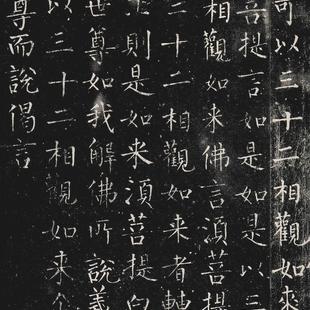 可以三十二相觀如來
菩提言如是如是以三
相觀如來佛言須菩提
三十二相觀如來者轉
王則是如來須菩提白
世尊如我解佛所說義
以三十二相觀如來
尊而說偈言